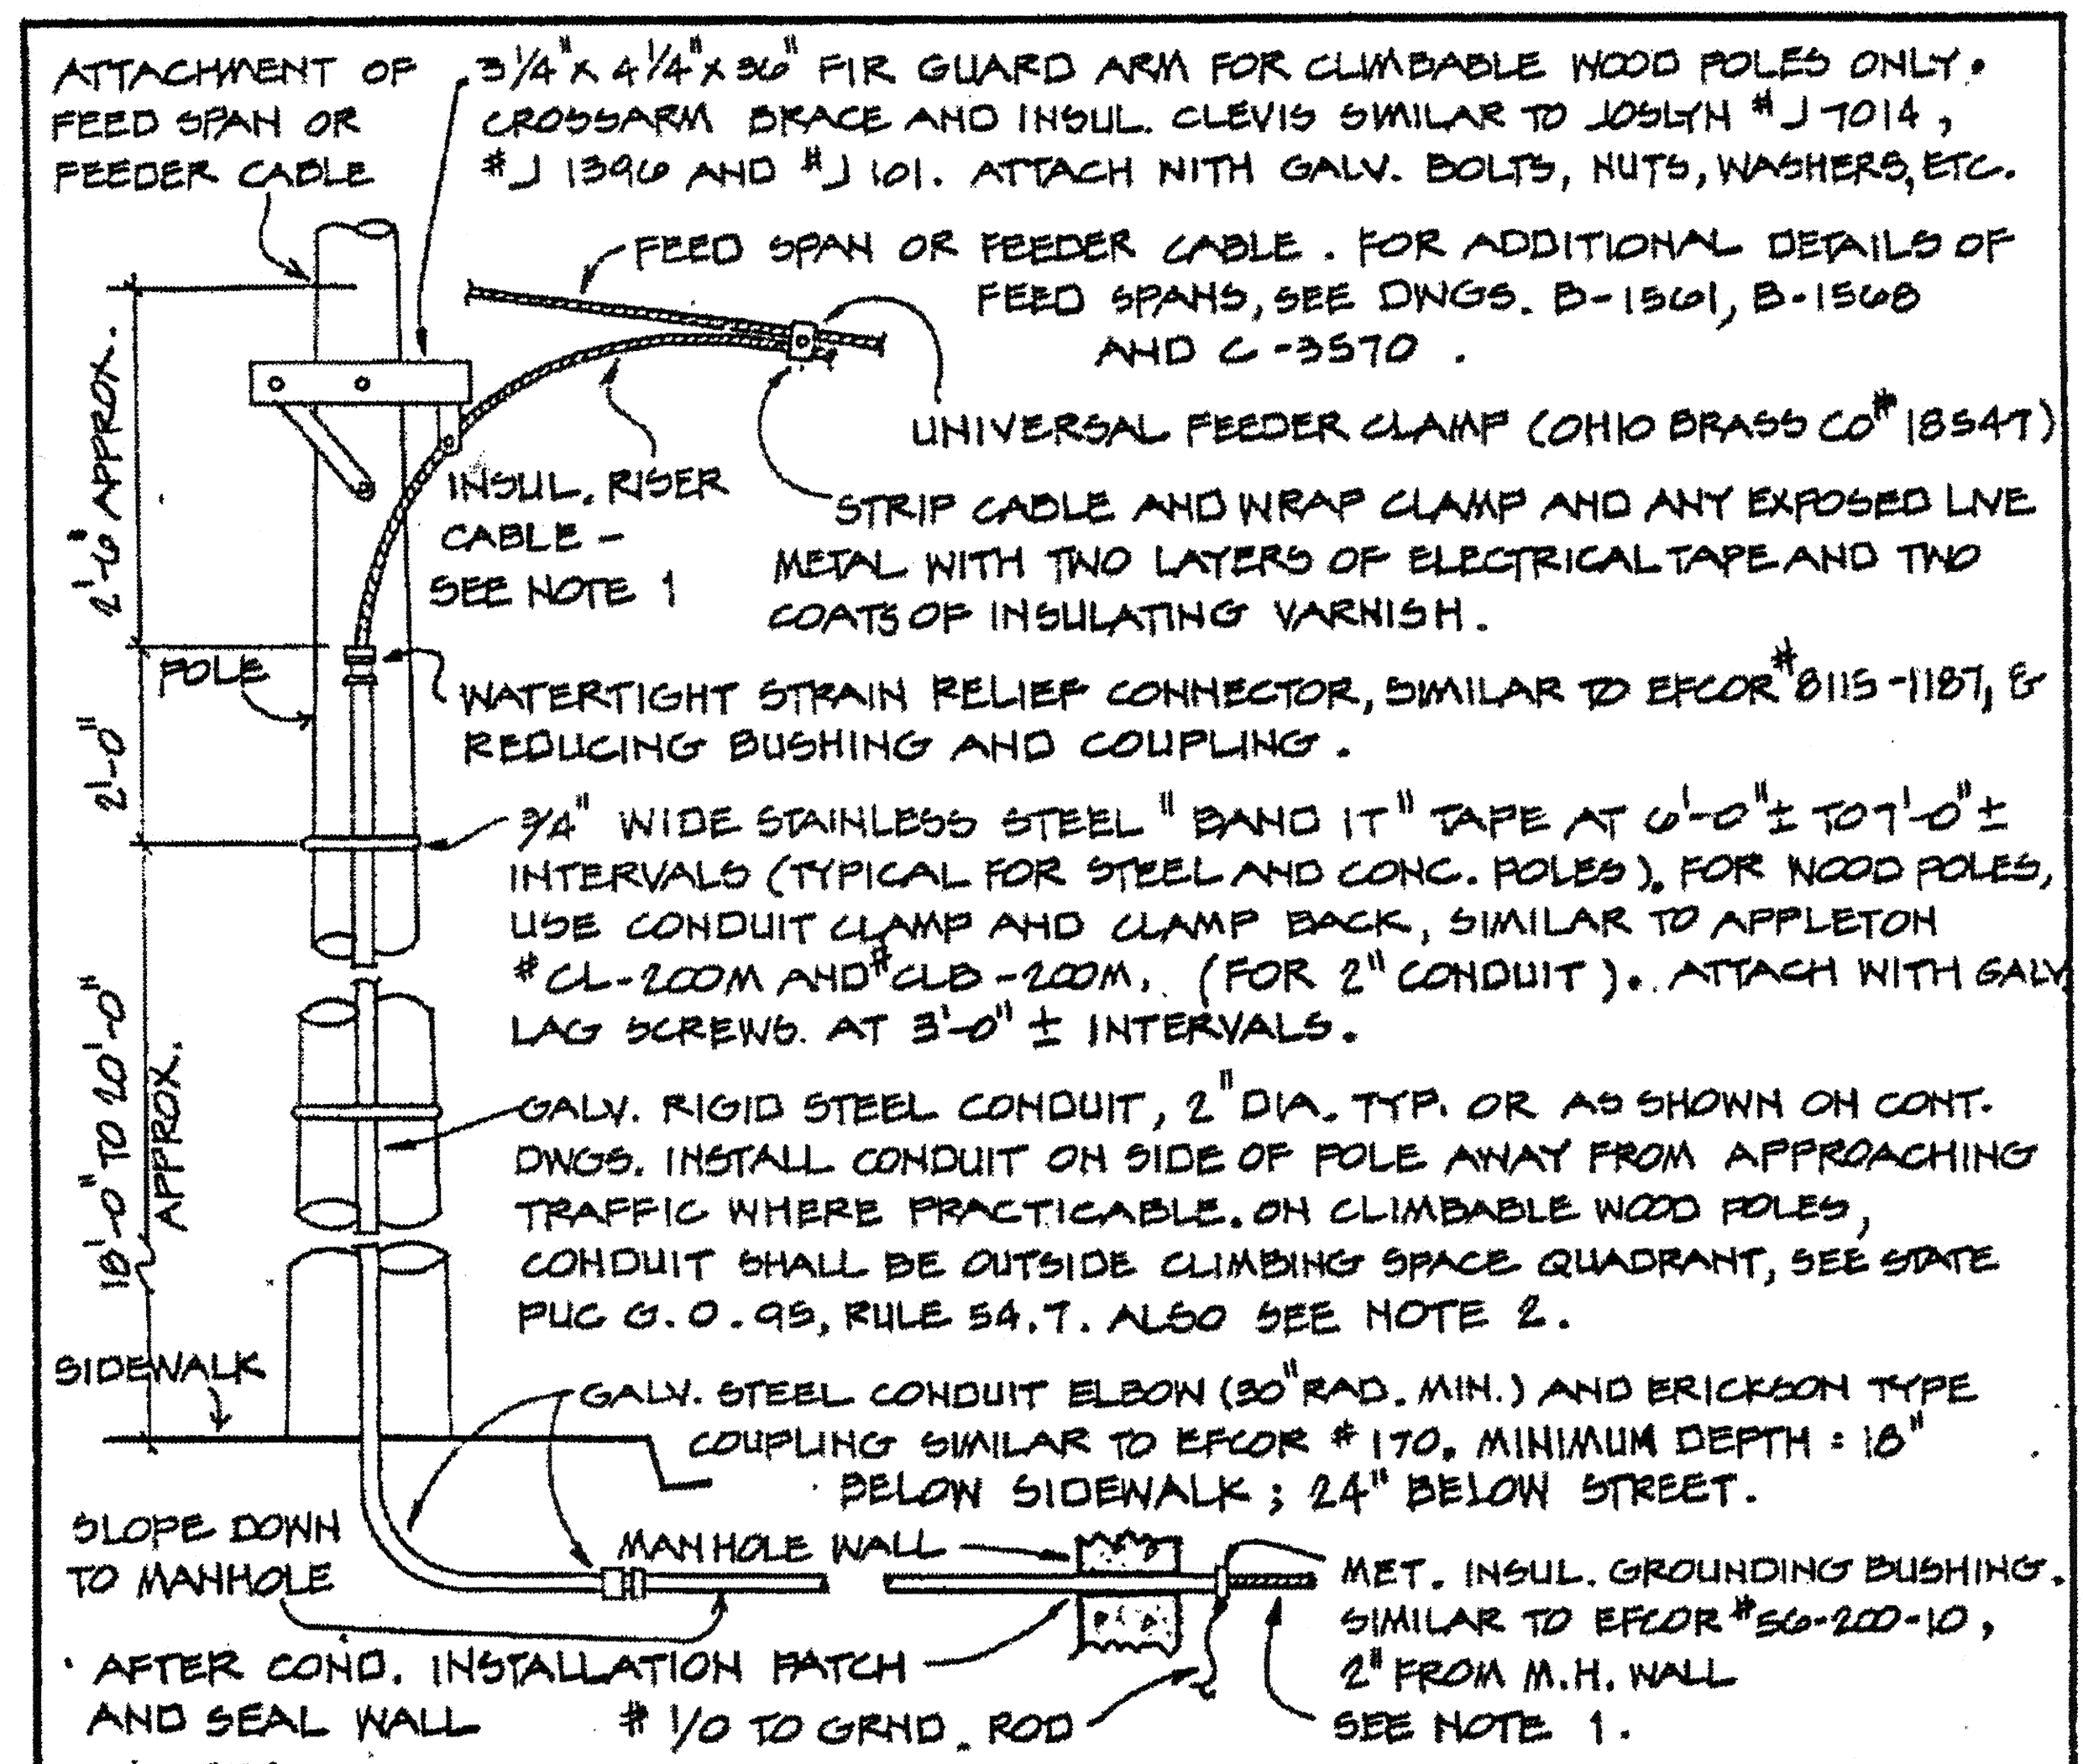 ATTACHMENT OF
FEED SPAN OR
FEEDER CABLE
3 1/4" X 4 1/4" X 36" FIR GUARD ARM FOR CLIMBABLE WOOD POLES ONLY.
CROSSARM BRACE AND INSUL. CLEVIS SIMILAR TO JOSLYN #J 7014,
#J 1396 AND #J 101. ATTACH WITH GALV. BOLTS, NUTS, WASHERS, ETC.
FEED SPAN OR FEEDER CABLE. FOR ADDITIONAL DETAILS OF
FEED SPANS, SEE DWGS. B-1561, B-1568
AND C-3570.
UNIVERSAL FEEDER CLAMP (OHIO BRASS CO # 18547)
2'-6" APPROX.
INSUL. RISER
CABLE -
SEE NOTE 1
STRIP CABLE AND WRAP CLAMP AND ANY EXPOSED LIVE
METAL WITH TWO LAYERS OF ELECTRICAL TAPE AND TWO
COATS OF INSULATING VARNISH.
POLE
2'-0"
WATERTIGHT STRAIN RELIEF CONNECTOR, SIMILAR TO EFCOR #8115-1187, &
REDUCING BUSHING AND COUPLING.
3/4" WIDE STAINLESS STEEL "BAND IT" TAPE AT 6'-0"± TO 7'-0"±
INTERVALS (TYPICAL FOR STEEL AND CONC. POLES). FOR WOOD POLES,
USE CONDUIT CLAMP AND CLAMP BACK, SIMILAR TO APPLETON
#CL-200M AND #CLB-200M. (FOR 2" CONDUIT). ATTACH WITH GALV.
LAG SCREWS. AT 3'-0" ± INTERVALS.
18'-0" TO 20'-0"
APPROX.
GALV. RIGID STEEL CONDUIT, 2" DIA. TYP. OR AS SHOWN ON CONT.
DWGS. INSTALL CONDUIT ON SIDE OF POLE AWAY FROM APPROACHING
TRAFFIC WHERE PRACTICABLE. ON CLIMBABLE WOOD POLES,
CONDUIT SHALL BE OUTSIDE CLIMBING SPACE QUADRANT, SEE STATE
PUC G.O. 95, RULE 54.7. ALSO SEE NOTE 2.
SIDEWALK
GALV. STEEL CONDUIT ELBOW (30" RAD. MIN.) AND ERICKSON TYPE
COUPLING SIMILAR TO EFCOR #170. MINIMUM DEPTH = 18"
BELOW SIDEWALK; 24" BELOW STREET.
SLOPE DOWN
TO MANHOLE
MANHOLE WALL
MET. INSUL. GROUNDING BUSHING.
SIMILAR TO EFCOR #56-200-10,
2" FROM M.H. WALL
AFTER COND. INSTALLATION PATCH
AND SEAL WALL
# 1/0 TO GRND. ROD
SEE NOTE 1.